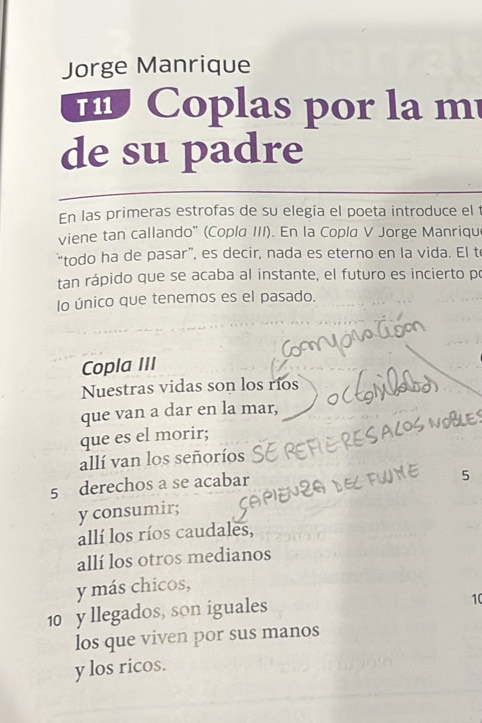 Jorge Manrique
T 11 Coplas por la mu
de su padre
En las primeras estrofas de su elegía el poeta introduce el t
viene tan callando" (Copla III). En la Copla V Jorge Manriqu
"todo ha de pasar", es decir, nada es eterno en la vida. El te
tan rápido que se acaba al instante, el futuro es incierto po
lo único que tenemos es el pasado.
Copla III
Nuestras vidas son los ríos
que van a dar en la mar,
que es el morir;
allí van los señoríos SE REFIERES A LOS NOBLES
5 derechos a se acabar 5
y consumir;
allí los ríos caudales,
allí los otros medianos
y más chicos,
10 y llegados, son iguales 10
los que viven por sus manos
y los ricos.